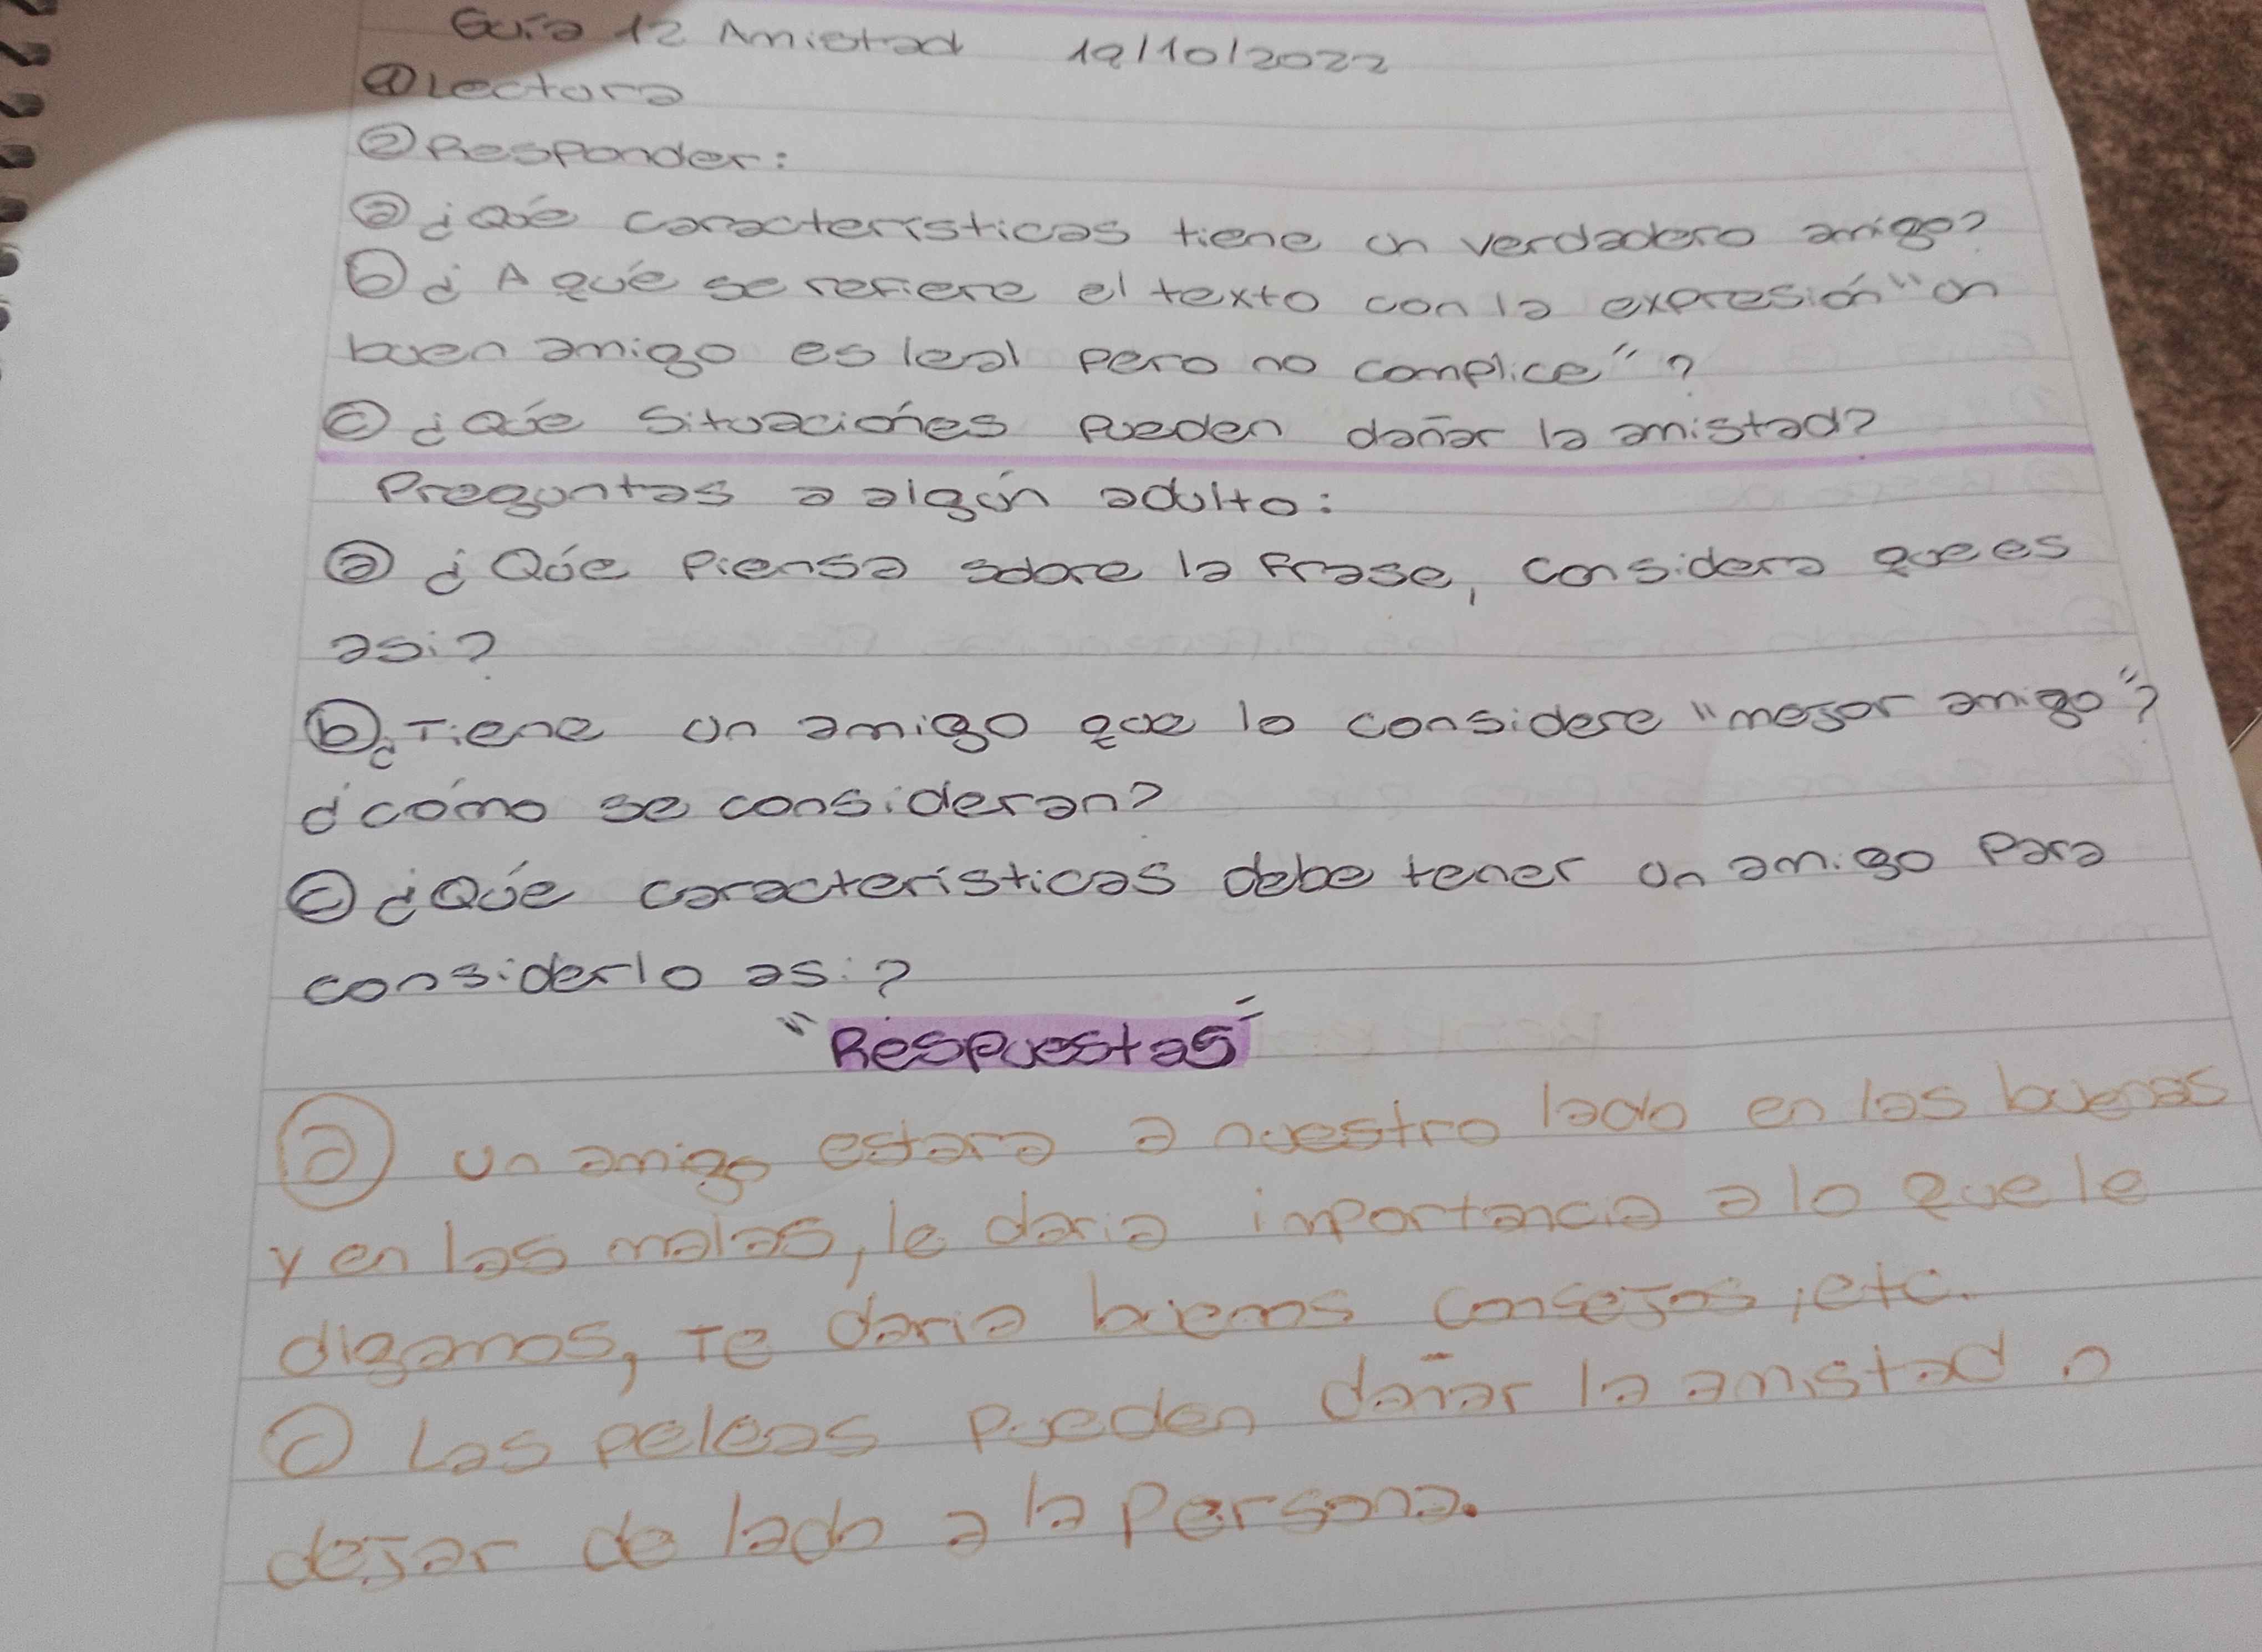 Guía 12 Amistad 19/10/2022
① Lectura
② Responder:
ⓐ ¿Qué características tiene un verdadero amigo?
ⓑ ¿A qué se refiere el texto con la expresión "un
buen amigo es leal pero no complice"?
ⓒ ¿Qué situaciónes pueden dañar la amistad?
Preguntas a algún adulto:
ⓐ ¿Qúe piensa sobre la frase, considera que es
asi?
ⓑ ¿Tiene un amigo que lo considere "mejor amigo"?
¿cómo se consideran?
ⓒ ¿Qúe características debe tener un amigo para
considerlo asi?
"Respuestas"
ⓐ un amigo estara a nuestro lado en las buenas
y en las malas, le daria importancia a lo que le
digamos, Te daria buenos consejos, etc.
ⓒ Las peleas pueden dañar la amistad o
dejar de lado a la persona.